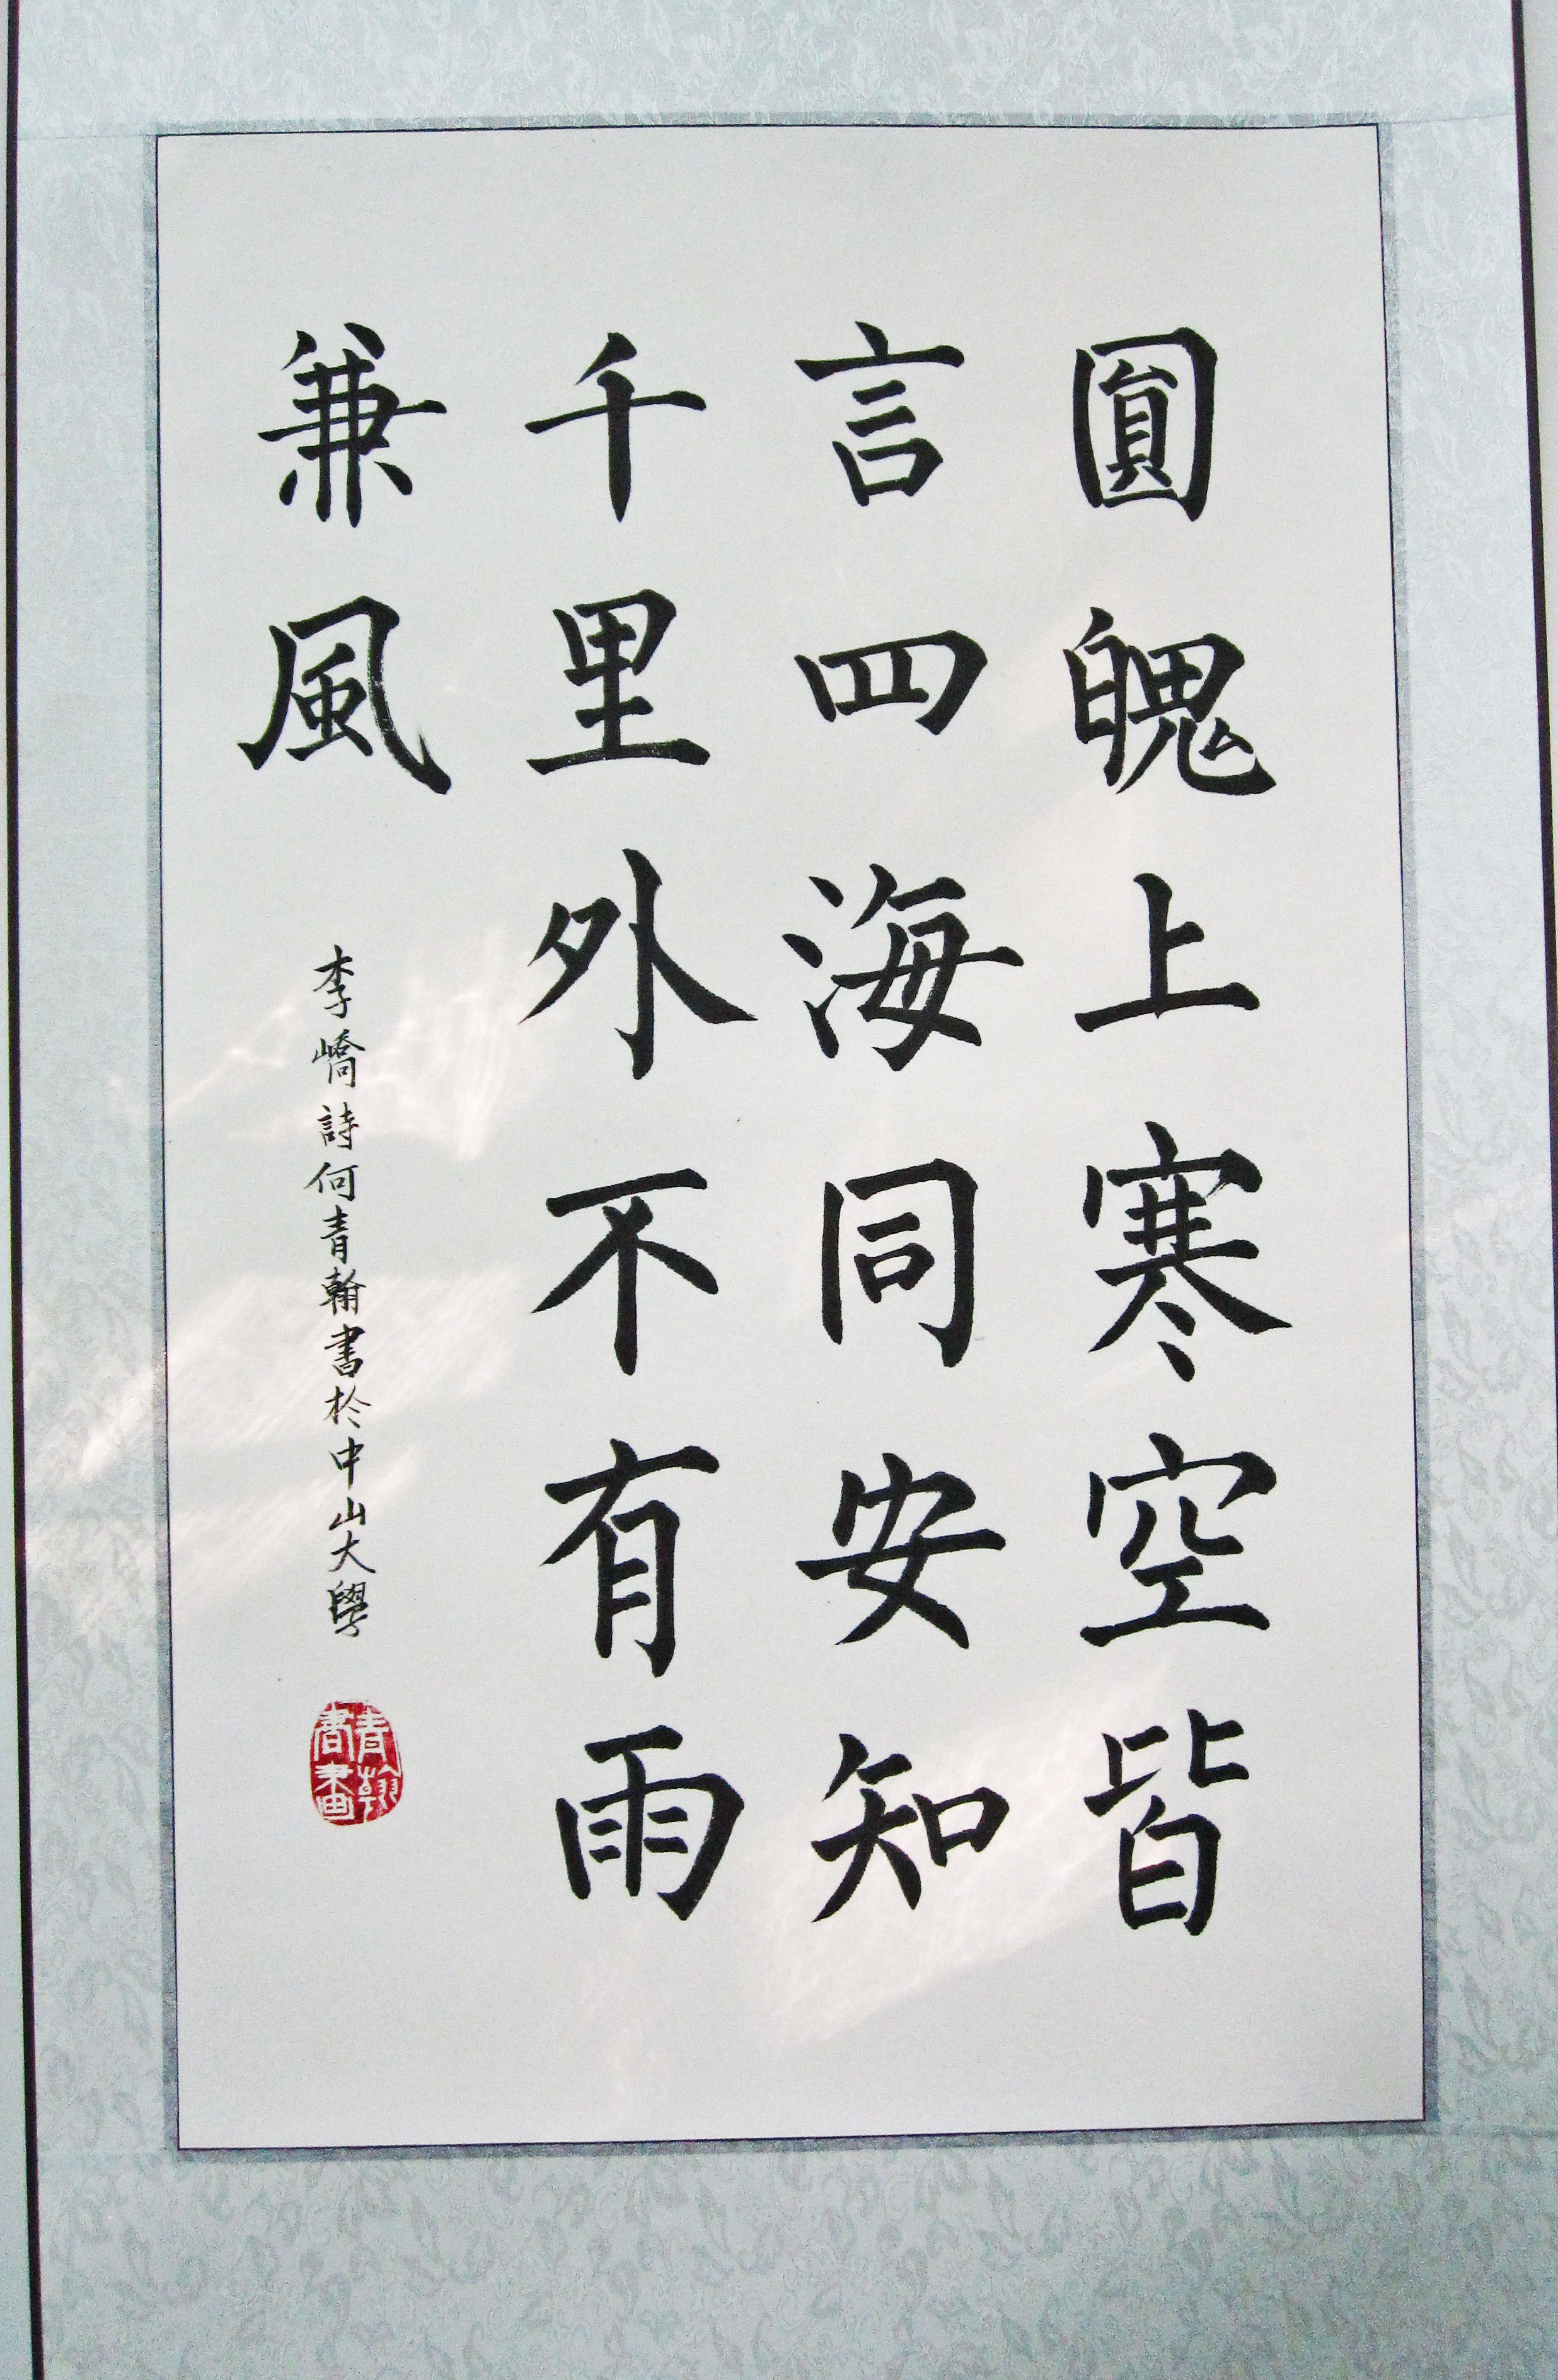 圓魄上寒空皆
言四海同安知
千里外不有雨
兼風
李嶠詩何青翰書於中山大學
青翰
書畫